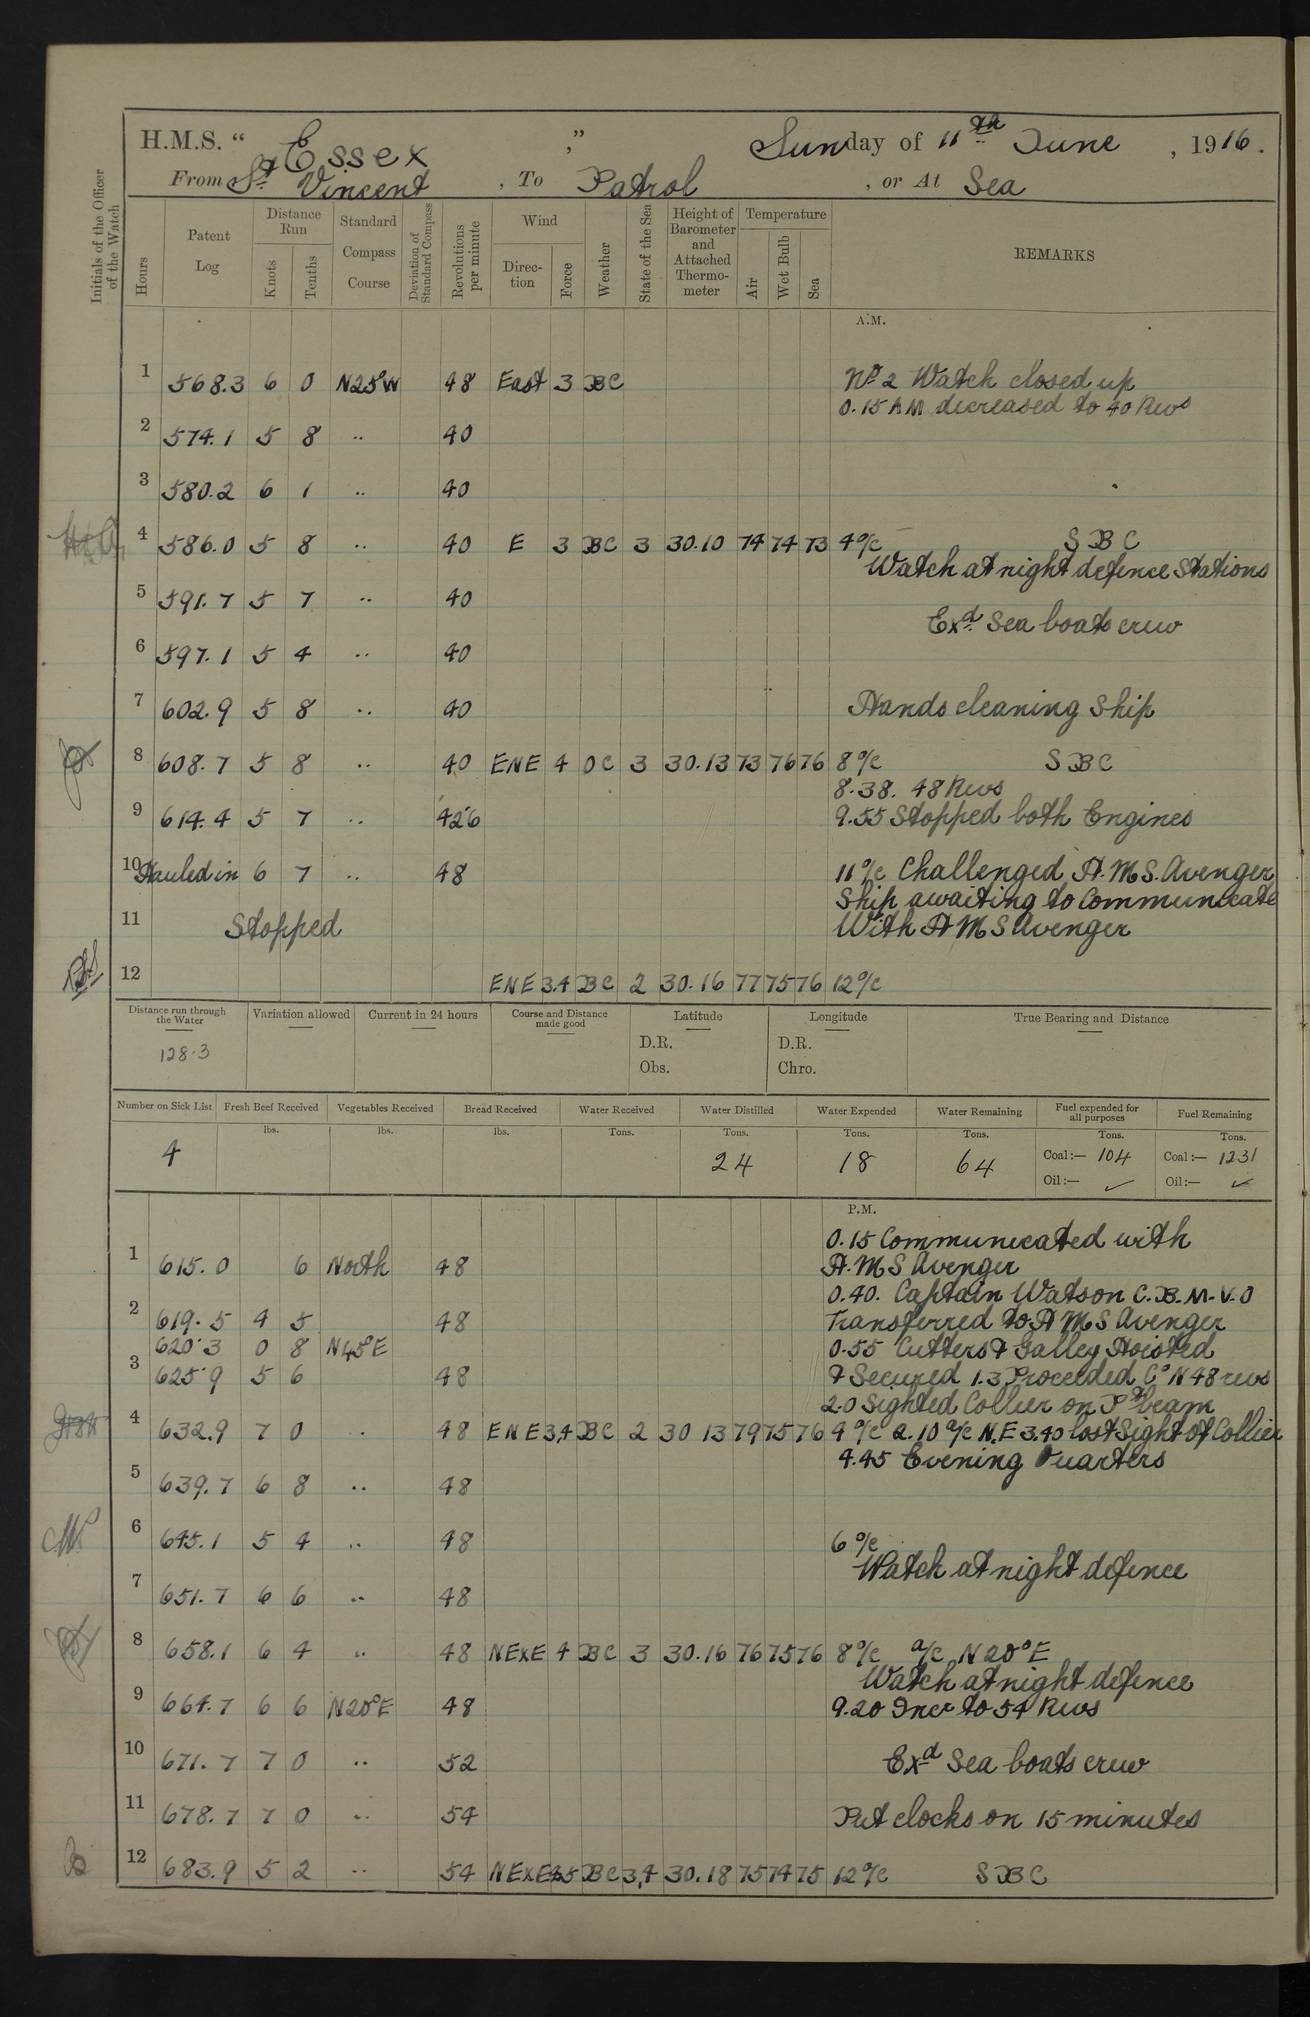 H.M.S. " Essex " Sunday of 11th June, 1916.
From St Vincent, To Patrol, or At Sea
Initials of the Officer of the Watch
Hours
Patent Log
Distance Run
Knots
Tenths
Standard Compass Course
Deviation of Standard Compass
Revolutions per minute
Wind
Direction
Force
Weather
State of the Sea
Height of Barometer and Attached Thermometer
Temperature
Air
Wet Bulb
Sea
REMARKS
A.M.
1 568.3 6 0 N25°W 48 East 3 BC No 2 Watch closed up
0.15 AM decreased to 40 Revs
2 574.1 5 8 .. 40
3 580.2 6 1 .. 40
4 586.0 5 8 .. 40 E 3 BC 3 30.10 74 74 73 4 o/c SBC
Watch at night defence Stations
5 591.7 5 7 .. 40
Exd Sea boats crew
6 597.1 5 4 .. 40
7 602.9 5 8 .. 40 Hands cleaning Ship
8 608.7 5 8 .. 40 ENE 4 OC 3 30.13 73 76 76 8 o/c SBC
8.38. 48 Revs
9 614.4 5 7 .. 42.6 9.55 Stopped both Engines
10 Hauled in 6 7 .. 48 11 o/c Challenged H.M.S. Avenger
Ship awaiting to Communicate
11 Stopped With H M S Avenger
12 ENE 3.4 BC 2 30.16 77 75 76 12 o/c
Distance run through the Water
Variation allowed
Current in 24 hours
Course and Distance made good
Latitude
Longitude
True Bearing and Distance
128.3
D.R. D.R.
Obs. Chro.
Number on Sick List
Fresh Beef Received
Vegetables Received
Bread Received
Water Received
Water Distilled
Water Expended
Water Remaining
Fuel expended for all purposes
Fuel Remaining
lbs. lbs. lbs. Tons. Tons. Tons. Tons. Tons. Tons.
4 24 18 64 Coal:— 104 Coal:— 1231
Oil:— ✓ Oil:— ✓
P.M.
0.15 Communicated with
1 615.0 6 North 48 H.M S Avenger
0.40. Captain Watson C.B. M.V.O
2 619.5 4 5 48 Transferred to H M S Avenger
620.3 0 8 N45°E 0.55 Cutters & Galley Hoisted
3 625.9 5 6 48 & Secured 1.3 Proceeded Co N 48 revs
2.0 Sighted Collier on Pt beam
4 632.9 7 0 .. 48 ENE 3,4 BC 2 30 13 79 75 76 4 o/c 2.10 a/c N.E 3.40 lost Sight of Collier
4.45 Evening Quarters
5 639.7 6 8 .. 48
6 645.1 5 4 .. 48 6 o/c
Watch at night defence
7 651.7 6 6 .. 48
8 658.1 6 4 .. 48 NExE 4 BC 3 30.16 76 75 76 8 o/c a/c N 20° E
Watch at night defence
9 664.7 6 6 N20°E 48 9.20 Incr to 54 Revs
10 671.7 7 0 .. 52 Exd Sea boats crew
11 678.7 7 0 .. 54 Put clocks on 15 minutes
12 683.9 5 2 .. 54 NExE 4.5 BC 3,4 30.18 75 74 75 12 o/c SBC